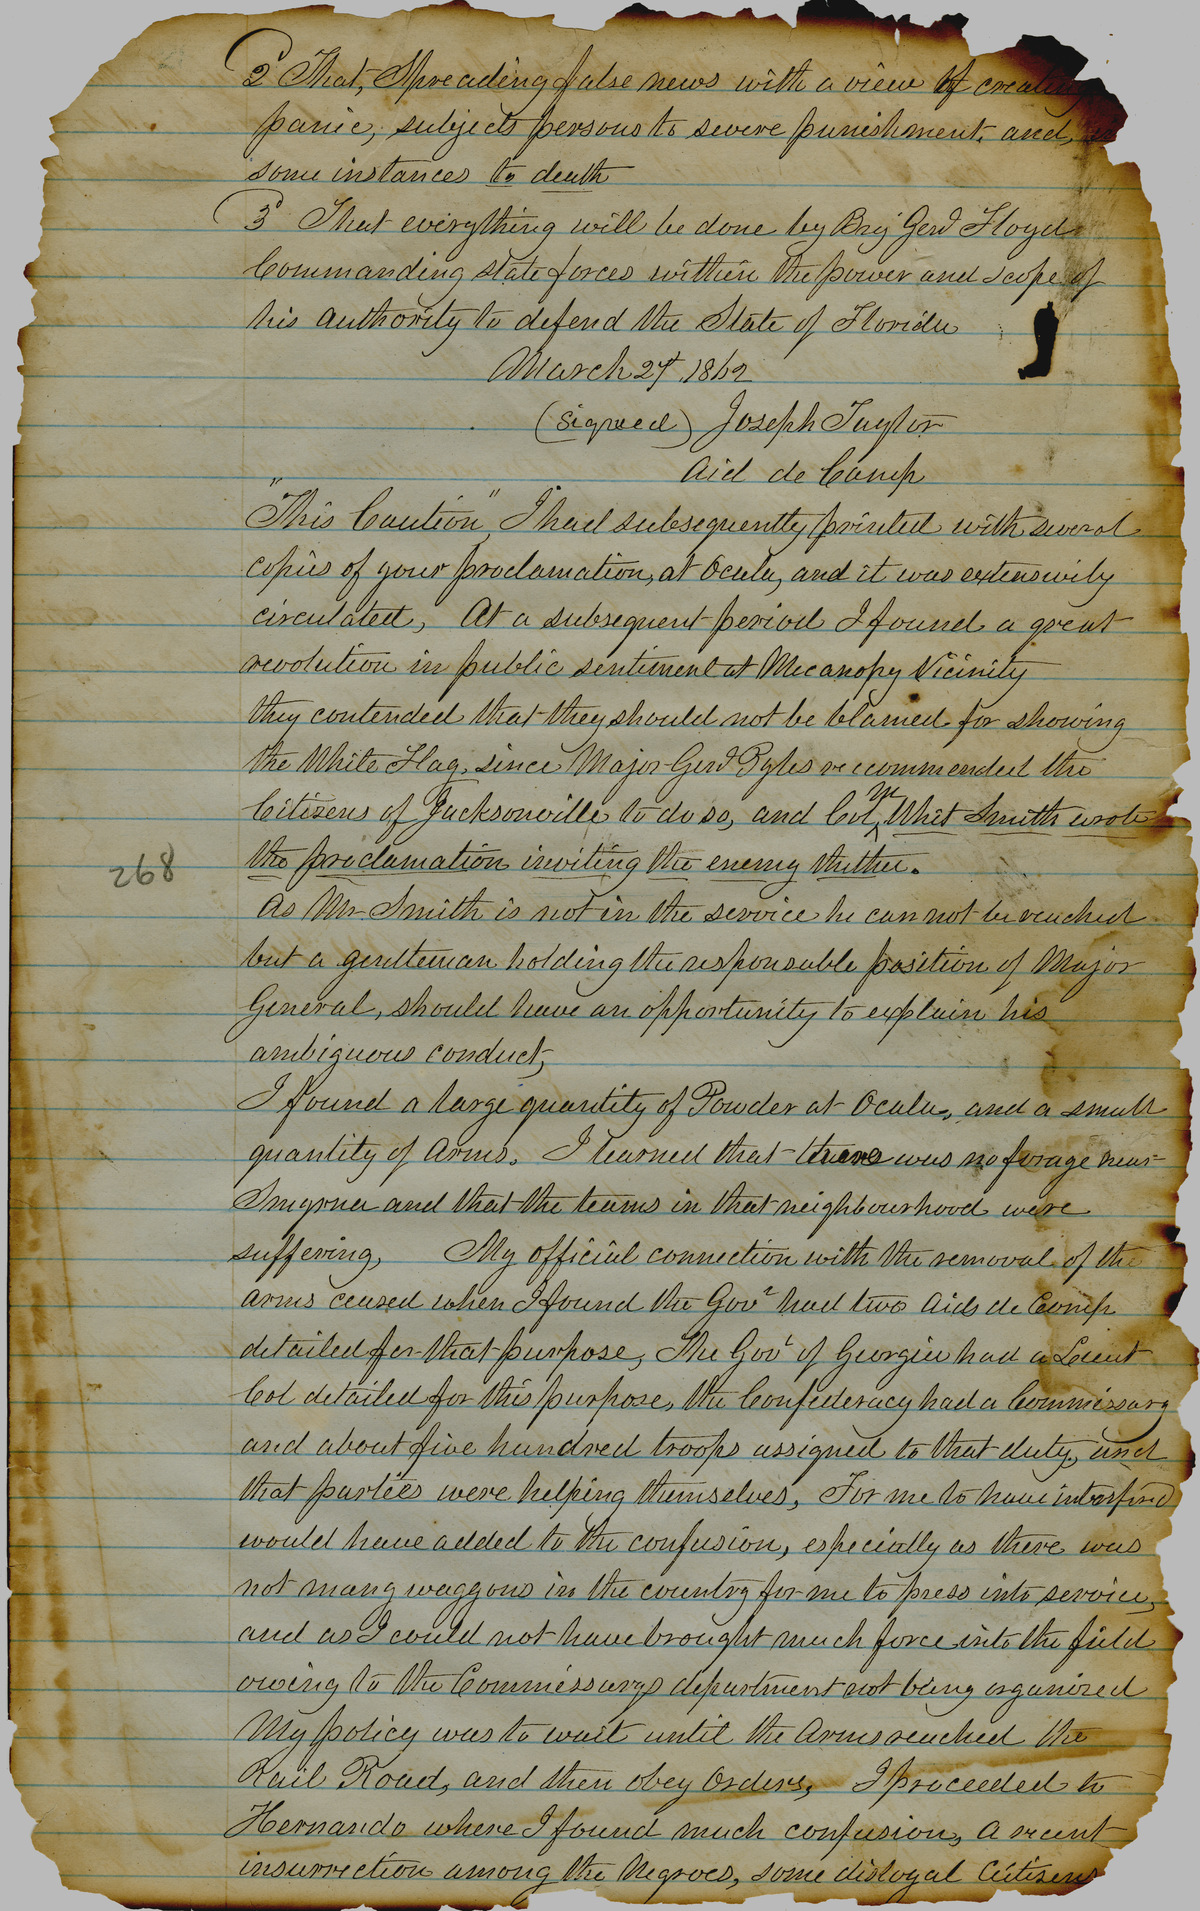 2d That, Spreading false news with a view of creating
panic, subjects persons to severe punishment, and, in
some instances to death
3d That everything will be done by Brig Genl Floyd
Commanding state forces within the power and scope of
his authority to defend the State of Florida
March 27, 1862
(signed) Joseph Taylor
Aid de Camp
"This Caution", I had subsequently printed with several
copies of your proclamation, at Ocala, and it was extensivily
circulated, At a subsequent period I found a great
revolution in public sentiment at Micanopy Vicinity
they contended that they should not be blamed for showing
the White Flag, since Major Genl Pyles recommended the
Citizens of Jacksonville to do so, and Col, Whit Smith wrote
the proclamation inviting the enemy thither.
268
As Mr Smith is not in the service he can not be reached
but a gentleman holding the responsable position of Major
General, should have an opportunity to explain his
ambiguous conduct,
I found a large quantity of Powder at Ocala, and a small
quantity of Arms. I learned that there was no forage near
Smyrna and that the teams in that neighbourhood were
suffering, My official connection with the removal of the
arms ceased when I found the Govr had two Aids de Camp
detailed for that purpose, The Govr of Georgia had a Lieut
Col detailed for this purpose, the Confederacy had a Commissary
and about five hundred troops assigned to that duty, and
that parties were helping themselves, For me to have interfired
would have added to the confusion, especially as there was
not many waggons in the country for me to press into service,
and as I could not have brought much force into the field
owing to the Commissarys department not being organized
My policy was to wait until the Arms reached the
Rail Road, and then obey Orders, I proceeded to
Hernando where I found much confusion, a recent
insurrection among the Negroes, some disloyal Citizens